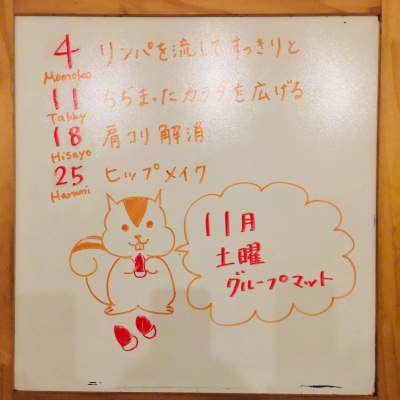 4 リンパを流してすっきりと
Momoko
11 ちぢまったカラダを広げる
Takky
18 肩コリ解消
Hisayo
25 ヒップメイク
Harumi
11月
土曜
グループマット